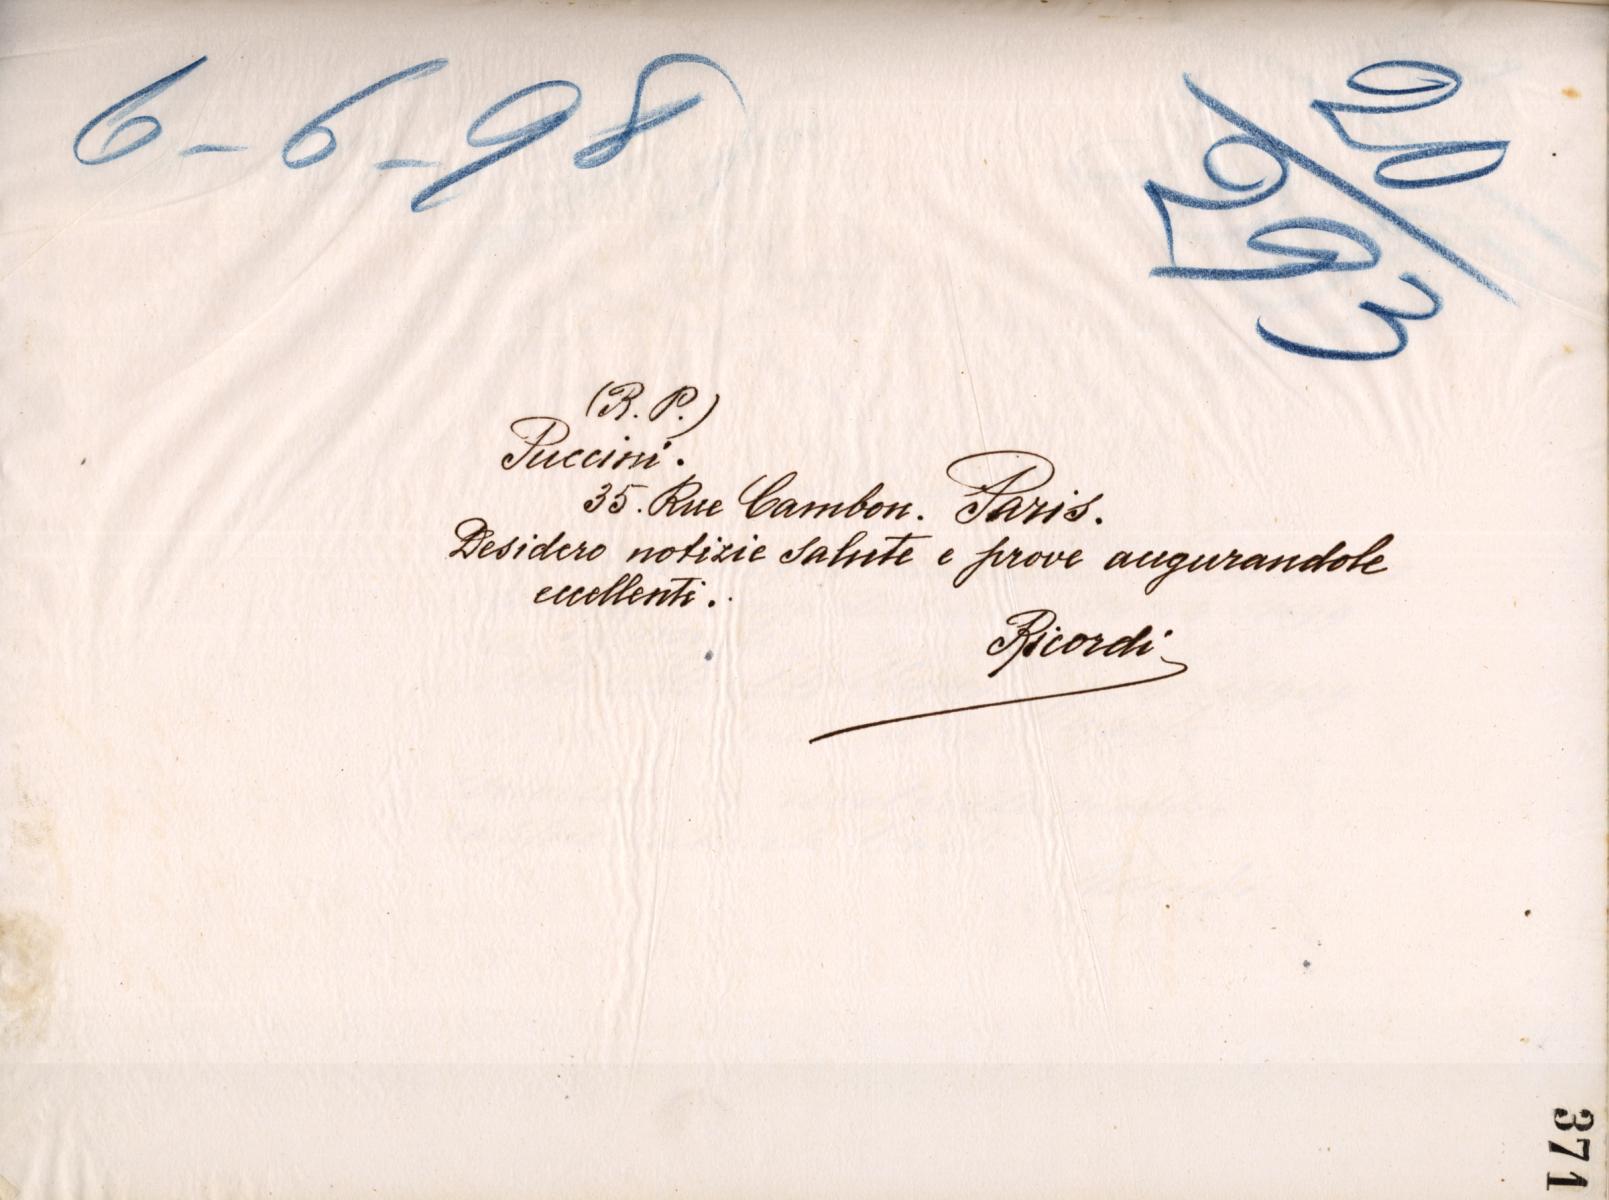 6-6-98
20/293
(R. P.)
Puccini.
35. Rue Cambon. Paris.
Desidero notizie salute e prove augurandole
eccellenti.
Ricordi
371